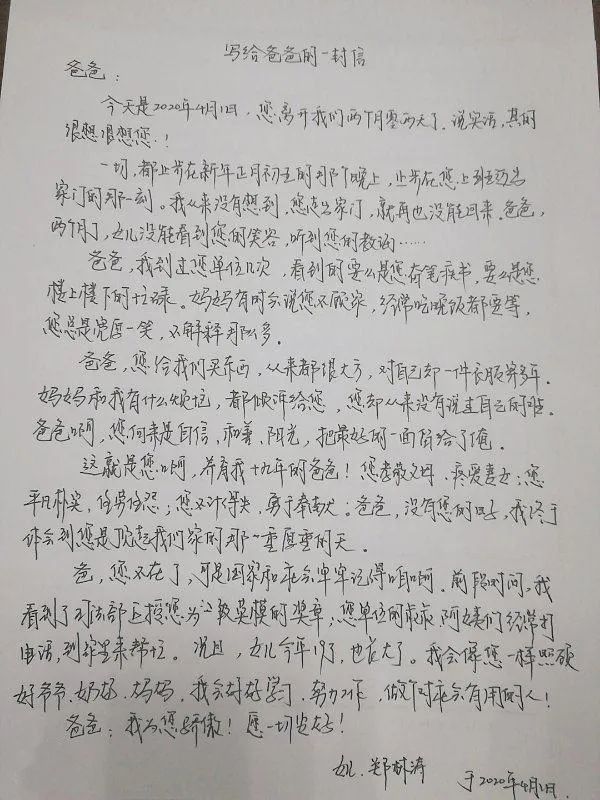 写给爸爸的一封信
爸爸：
今天是2020年4月1日，您离开我们两个月零两天了。说实话，真的
很想很想您！
一切，都止步在新年正月初五的那个晚上，止步在您上班迈出
家门的那一刻。我从来没有想到，您走出家门，就再也没能回来。爸爸，
两个月了，女儿没能看到您的笑容，听到您的教诲……
爸爸，我到过您单位几次，看到的要么是您奋笔疾书，要么是您
楼上楼下的忙碌。妈妈有时会说您不顾家，经常吃晚饭都要等，
您总是宽厚一笑，不解释那么多。
爸爸，您给我们买东西，从来都很大方，对自己却一件衣服穿多年。
妈妈和我有什么烦恼，都倾诉给您，您却从来没有说过自己的难。
爸爸啊，您向来是自信、和善、阳光，把最好的一面留给了俺。
这就是您啊，养育我十九年的爸爸！您孝敬父母，疼爱妻女；您
平凡朴实，任劳任怨；您不计得失，勇于奉献；爸爸，没有您的日子，我终于
体会到您是顶起我们家的那一重厚重的天。
爸，您不在了，可是国家和社会牢牢记得咱啊。前段时间，我
看到了司法部追授您为二级英模的奖章；您单位的叔叔、阿姨们经常打
电话，到家里来帮忙。况且，女儿今年19了，也长大了。我会像您一样照顾
好爷爷、奶奶、妈妈，我会好好学习，努力工作，做个对社会有用的人！
爸爸：我为您骄傲！愿一切安好！
女儿：郑林涛
于2020年4月1日.